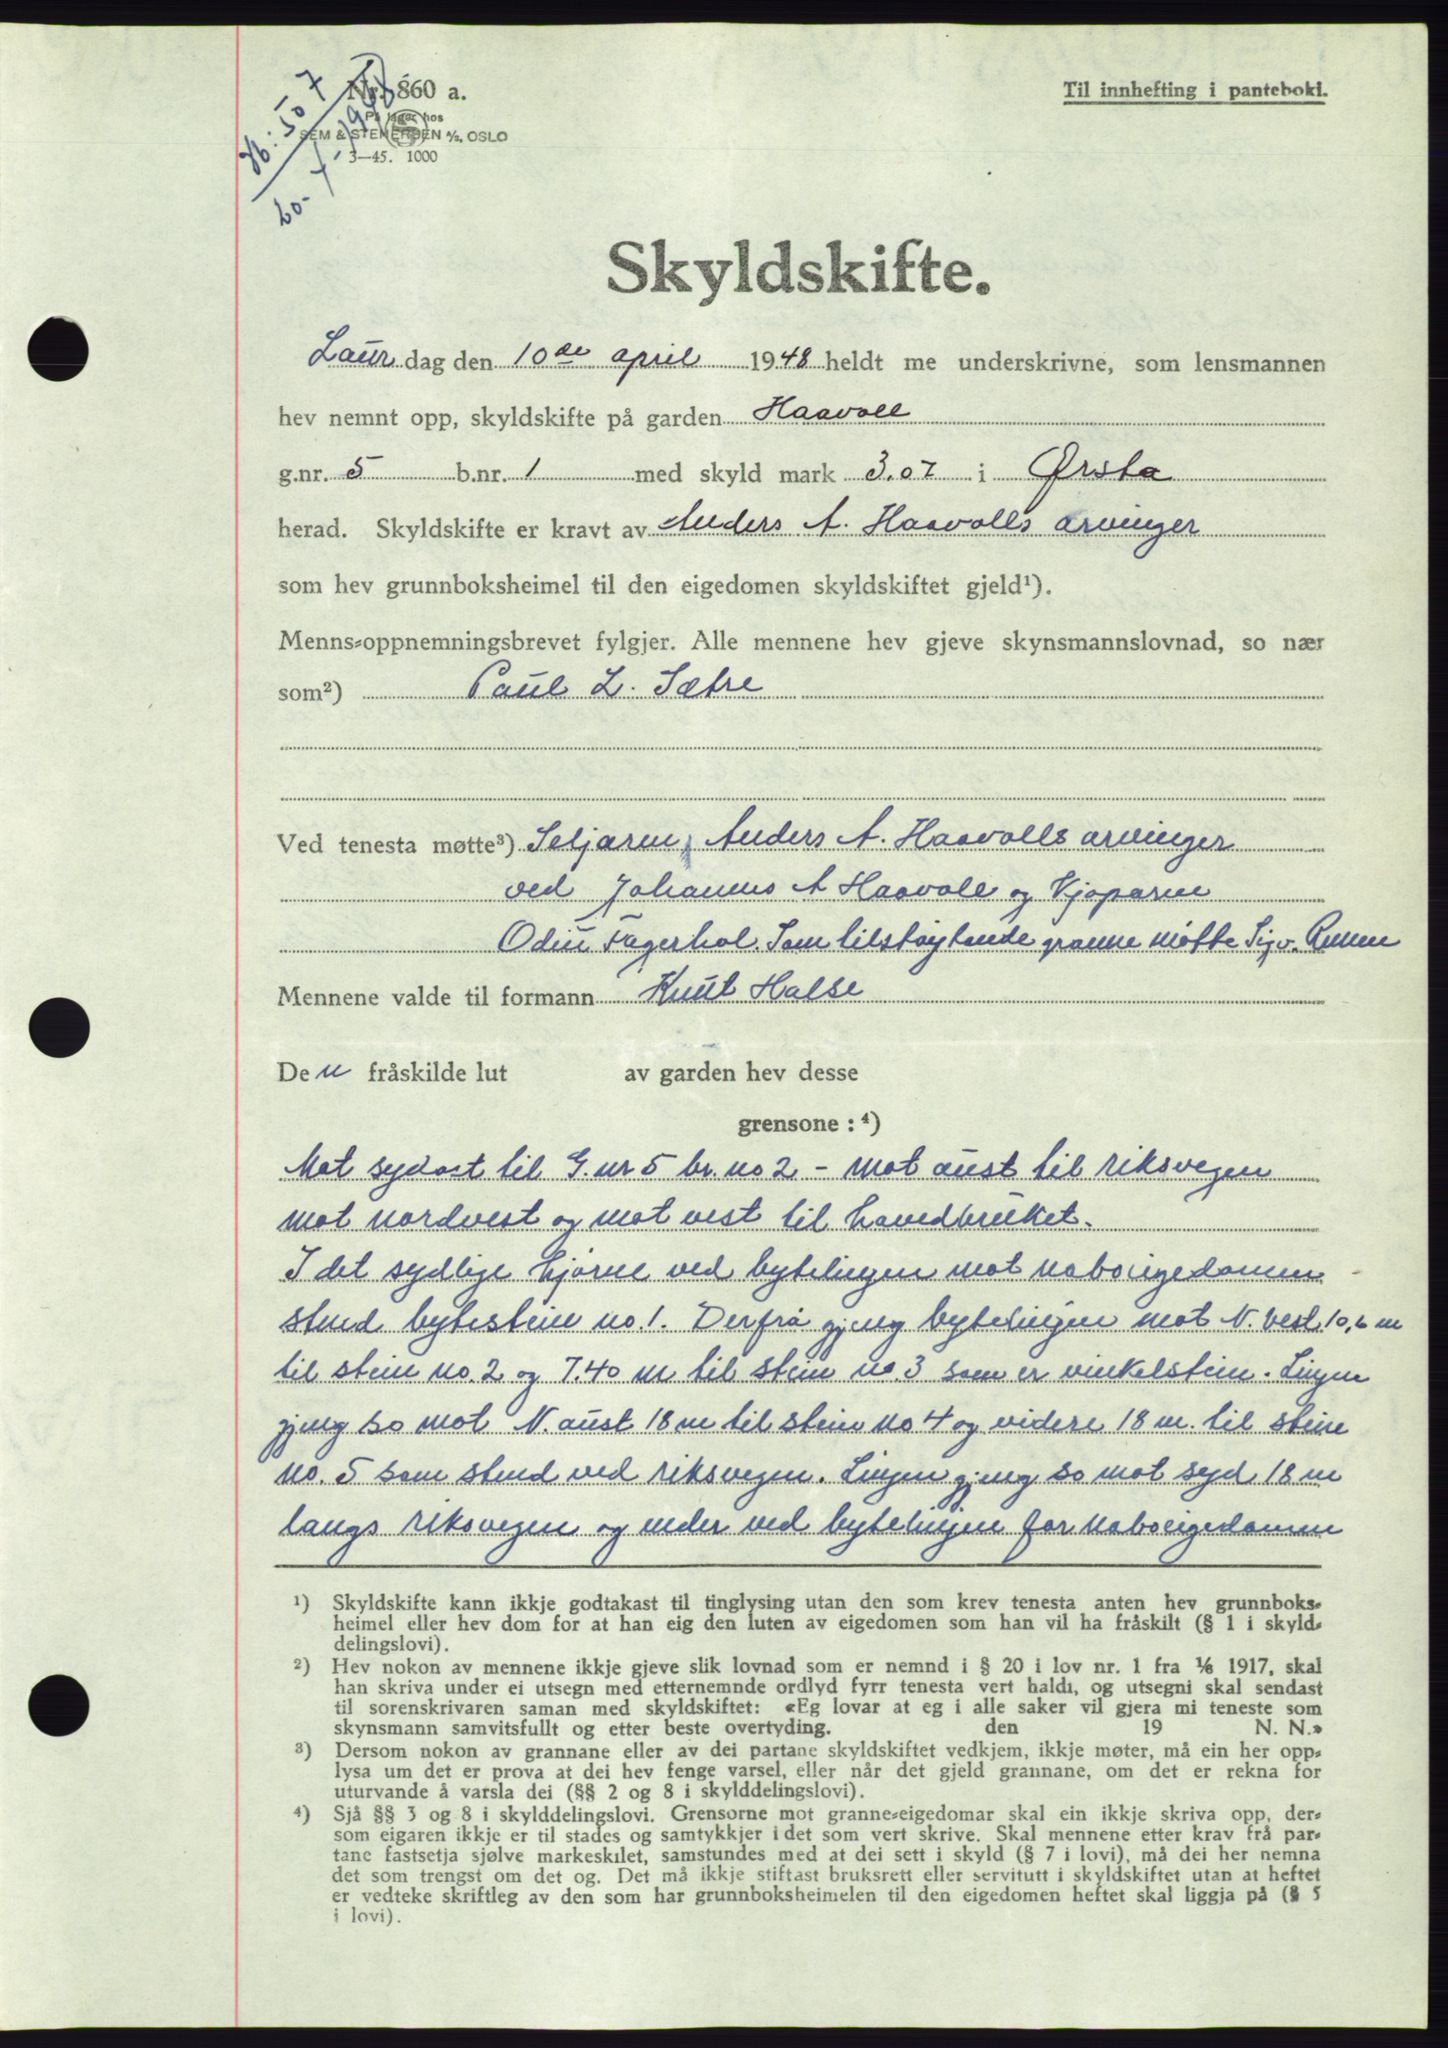 Nr. 860 a.
Til innhefting i panteboki.
På lager hos
SEM & STENERSEN A/S, OSLO
3—45. 1000
Jb: 507
20-4-1948
Skyldskifte.
Laurdag den 10de april 1948 heldt me underskrivne, som lensmannen
hev nemnt opp, skyldskifte på garden Haavoll
g.nr. 5 b.nr. 1 med skyld mark 3.07 i Ørsta
herad. Skyldskifte er kravt av Anders A. Haavolls arvinger
som hev grunnboksheimel til den eigedomen skyldskiftet gjeld¹).
Menns-oppnemningsbrevet fylgjer. Alle mennene hev gjeve skynsmannslovnad, so nær
som²) Paul L. Sætre
Ved tenesta møtte³) Seljaren, Anders A. Haavolls arvinger
ved Johannes A Haavoll og Kjøparen
Odin Fagerhol. Som tilstøytande granne møtte Sigv.
Mennene valde til formann Knut Halse
Den fråskilde lut av garden hev desse
grensone : ⁴)
Mot sydost til G.nr 5 br. no 2 - mot aust til riksvegen
mot nordvest og mot vest til hovedbruket.
I det sydlige hjørne ved bytelinjen mot naboeigedomen
stend bytestein no. 1. Derfrå gjeng bytelinjen mot N. vest 10,6 m
til stein no. 2 og 7.40 m til stein no. 3 som er vinkelstein. Linjen
gjeng so mot N. aust 18 m til stein no 4 og videre 18 m. til stein
no. 5 som stend ved riksvegen. Linjen gjeng so mot syd 18 m
langs riksvegen og ender ved bytelinjen for naboeigedomen
¹) Skyldskifte kann ikkje godtakast til tinglysing utan den som krev tenesta anten hev grunnboks-
heimel eller hev dom for at han eig den luten av eigedomen som han vil ha fråskilt (§ 1 i skyld-
delingslovi).
²) Hev nokon av mennene ikkje gjeve slik lovnad som er nemnd i § 20 i lov nr. 1 fra 1/6 1917, skal
han skriva under ei utsegn med etternemnde ordlyd fyrr tenesta vert haldi, og utsegni skal sendast
til sorenskrivaren saman med skyldskiftet: «Eg lovar at eg i alle saker vil gjera mi teneste som
skynsmann samvitsfullt og etter beste overtyding. den 19 N. N.»
³) Dersom nokon av grannane eller av dei partane skyldskiftet vedkjem, ikkje møter, må ein her opp-
lysa um det er prova at dei hev fenge varsel, eller når det gjeld grannane, om det er rekna for
uturvande å varsla dei (§§ 2 og 8 i skylddelingslovi).
⁴) Sjå §§ 3 og 8 i skylddelingslovi. Grensorne mot granne-eigedomar skal ein ikkje skriva opp, der-
som eigaren ikkje er til stades og samtykkjer i det som vert skrive. Skal mennene etter krav frå par-
tane fastsetja sjølve markeskilet, samstundes med at dei sett i skyld (§ 7 i lovi), må dei her nemna
det som trengst om det og. Det må ikkje stiftast bruksrett eller servitutt i skyldskiftet utan at heftet
er vedteke skriftleg av den som har grunnboksheimelen til den eigedomen heftet skal liggja på (§ 5
i lovi).